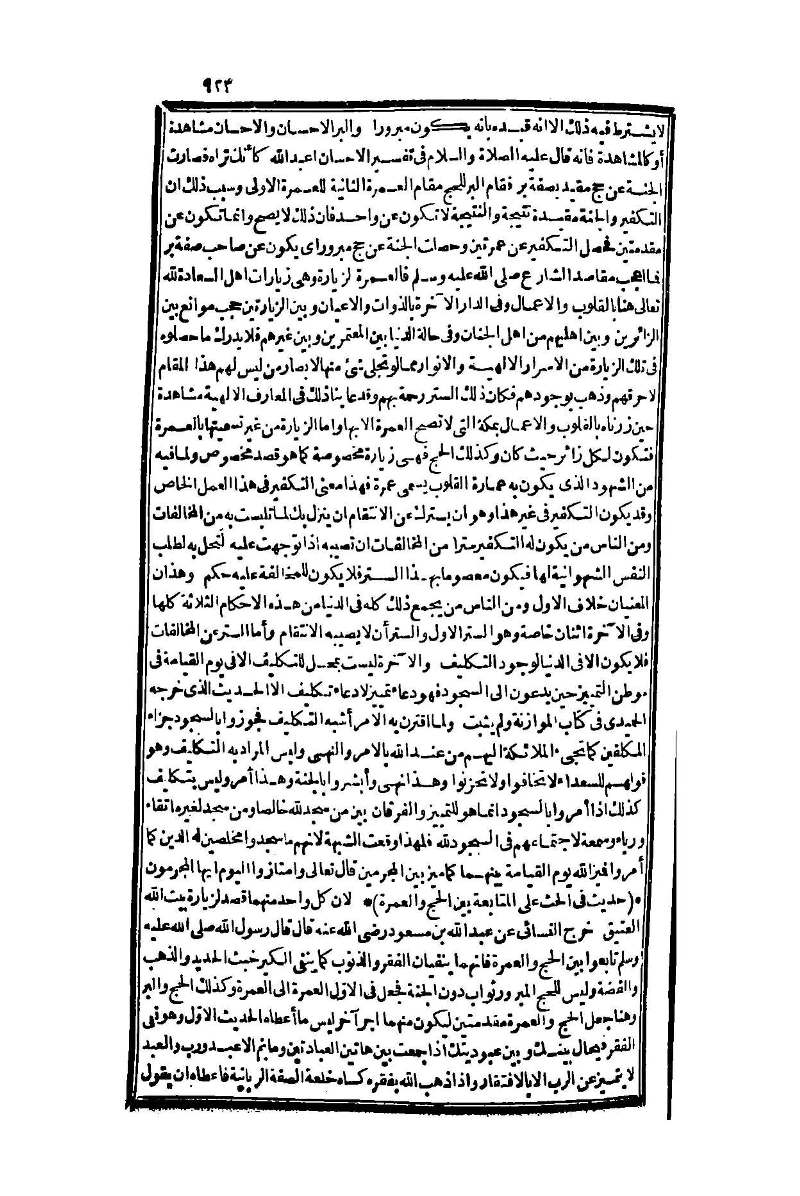 ٩٢٣
لا يشترط فيه ذلك الا انه قيده بأنه يكون مبرورا والبر الاحسان والاحسان مشاهدة
أو كالمشاهدة فانه قال عليه الصلاة والسلام فى تفسير الاحسان اعبد الله كأنك تراه فصارت
الجنة عن حج مقيد بصفة بر فقام البر للحج مقام العمرة الثانية للعمرة الاولى وسبب ذلك ان
التكفير والجنة مقيدة نتيجة والنتيجة لا تكون عن واحد فان ذلك لا يصح وانما تكون عن
مقدمتين فحصل التكفير عن عمرتين وحصلت الجنة عن حج مبرور اى يكون عن صاحب صفة بر
فما اعجب مقاصد الشارع صلى الله عليه وسلم فالعمرة لزيارة وهى زيارات اهل السعادة لله
تعالى هنا بالقلوب والاعمال وفى الدار الآخرة بالذوات والاعيان وبين الزيارتين حجب موانع بين
الزائرين وبين اهليهم من اهل الجنان وفى حالة الدنيا بين المعتمرين وبين غيرهم فلا يدرك ما حصلوه
فى تلك الزيارة من الاسرار الالهية والانوار مما لو تجلى شئ منها لابصار من ليس لهم هذا المقام
لاحرقهم وذهب بوجودهم فكان ذلك الستر رحمة بهم وقد عاينا ذلك فى المعارف الالهية مشاهدة
حين زرناه بالقلوب والاعمال بمكة التى لا تصح العمرة الا بها واما الزيارة من غير تسميتها بالعمرة
فتكون لكل زائر حيث كان وكذلك الحج فهى زيارة مخصوصة كما هو قصد مخصوص ولما فيه
من الشهود الذى يكون به عمارة القلوب يسمى عمرة فهذا معنى التكفير فى هذا العمل الخاص
وقد يكون التكفير فى غير هذا وهو ان يسترك عن الانتقام ان ينزل بك لما تلبست به من المخالفات
ومن الناس من يكون له التكفير سترا من المخالفات ان تصيبه اذا توجهت عليه لتحل به لطلب
النفس الشهوانية لها فيكون معصوما بهذا الستر فلا يكون للمخالفة عليه حكم وهذان
المعنيان خلاف الاول ومن الناس من يجمع ذلك كله فى الدنيا من هذه الاحكام الثلاثة كلها
وفى الآخرة اثنان خاصة وهو الستر الاول والستر أن لا يصيبه الانتقام وأما الستر عن المخالفات
فلا يكون الا فى الدنيا لوجود التكليف والآخرة ليست بمحل للتكليف الا فى يوم القيامة فى
موطن التمييز حين يدعون الى السجود فهو دعاء تمييز لا دعاء تكليف الا الحديث الذى خرجه
الحميدى فى كتاب الموازنة ولم يثبت ولما اقترن به الامر أشبه التكليف فجوزوا بالسجود جزاء
المكلفين كما تجىء الملائكة اليهم من عند الله بالامر والنهى وليس المراد به التكليف وهو
قولهم للسعداء لا تخافوا ولا تحزنوا وهذا نهى وأبشروا بالجنة وهذا أمر وليس بتكليف
كذلك اذا أمروا بالسجود انما هو للتمييز والفرقان بين من سجد لله خالصا ومن سجد لغيره اتقاء
ورياء وسمعة لاجتماعهم فى السجود لله فلهذا وقعت الشبهة لانهم ما سجدوا مخلصين له الدين كما
أمروا فيز الله يوم القيامة بينهما كما ميز بين المجرمين قال تعالى وامتازوا اليوم ايها المجرمون
*(حديث فى الحث على المتابعة بين الحج والعمرة)* لان كل واحد منهما قصد لزيارة بيت الله
العتيق خرج النسائى عن عبد الله بن مسعود رضى الله عنه قال قال رسول الله صلى الله عليه
وسلم تابعوا بين الحج والعمرة فانهما ينفيان الفقر والذنوب كما ينفى الكير خبث الحديد والذهب
والفضة وليس للحج المبرور ثواب دون الجنة فجعل فى الاول العمرة الى العمرة وكذلك الحج والبر
وهنا جعل الحج والعمرة مقدمتين ليكون منهما اجرا آخر ليس ما أعطاه الحديث الاول وهو نفى
الفقر فيحال بينك وبين عبوديتك اذا جمعت بين هاتين العبادتين وما ثم الا عبد ورب والعبد
لا يتميز عن الرب الا بالافتقار واذا ذهب الله بفقره كساه خلعة الصفة الربانية فاعطاه ان يقول